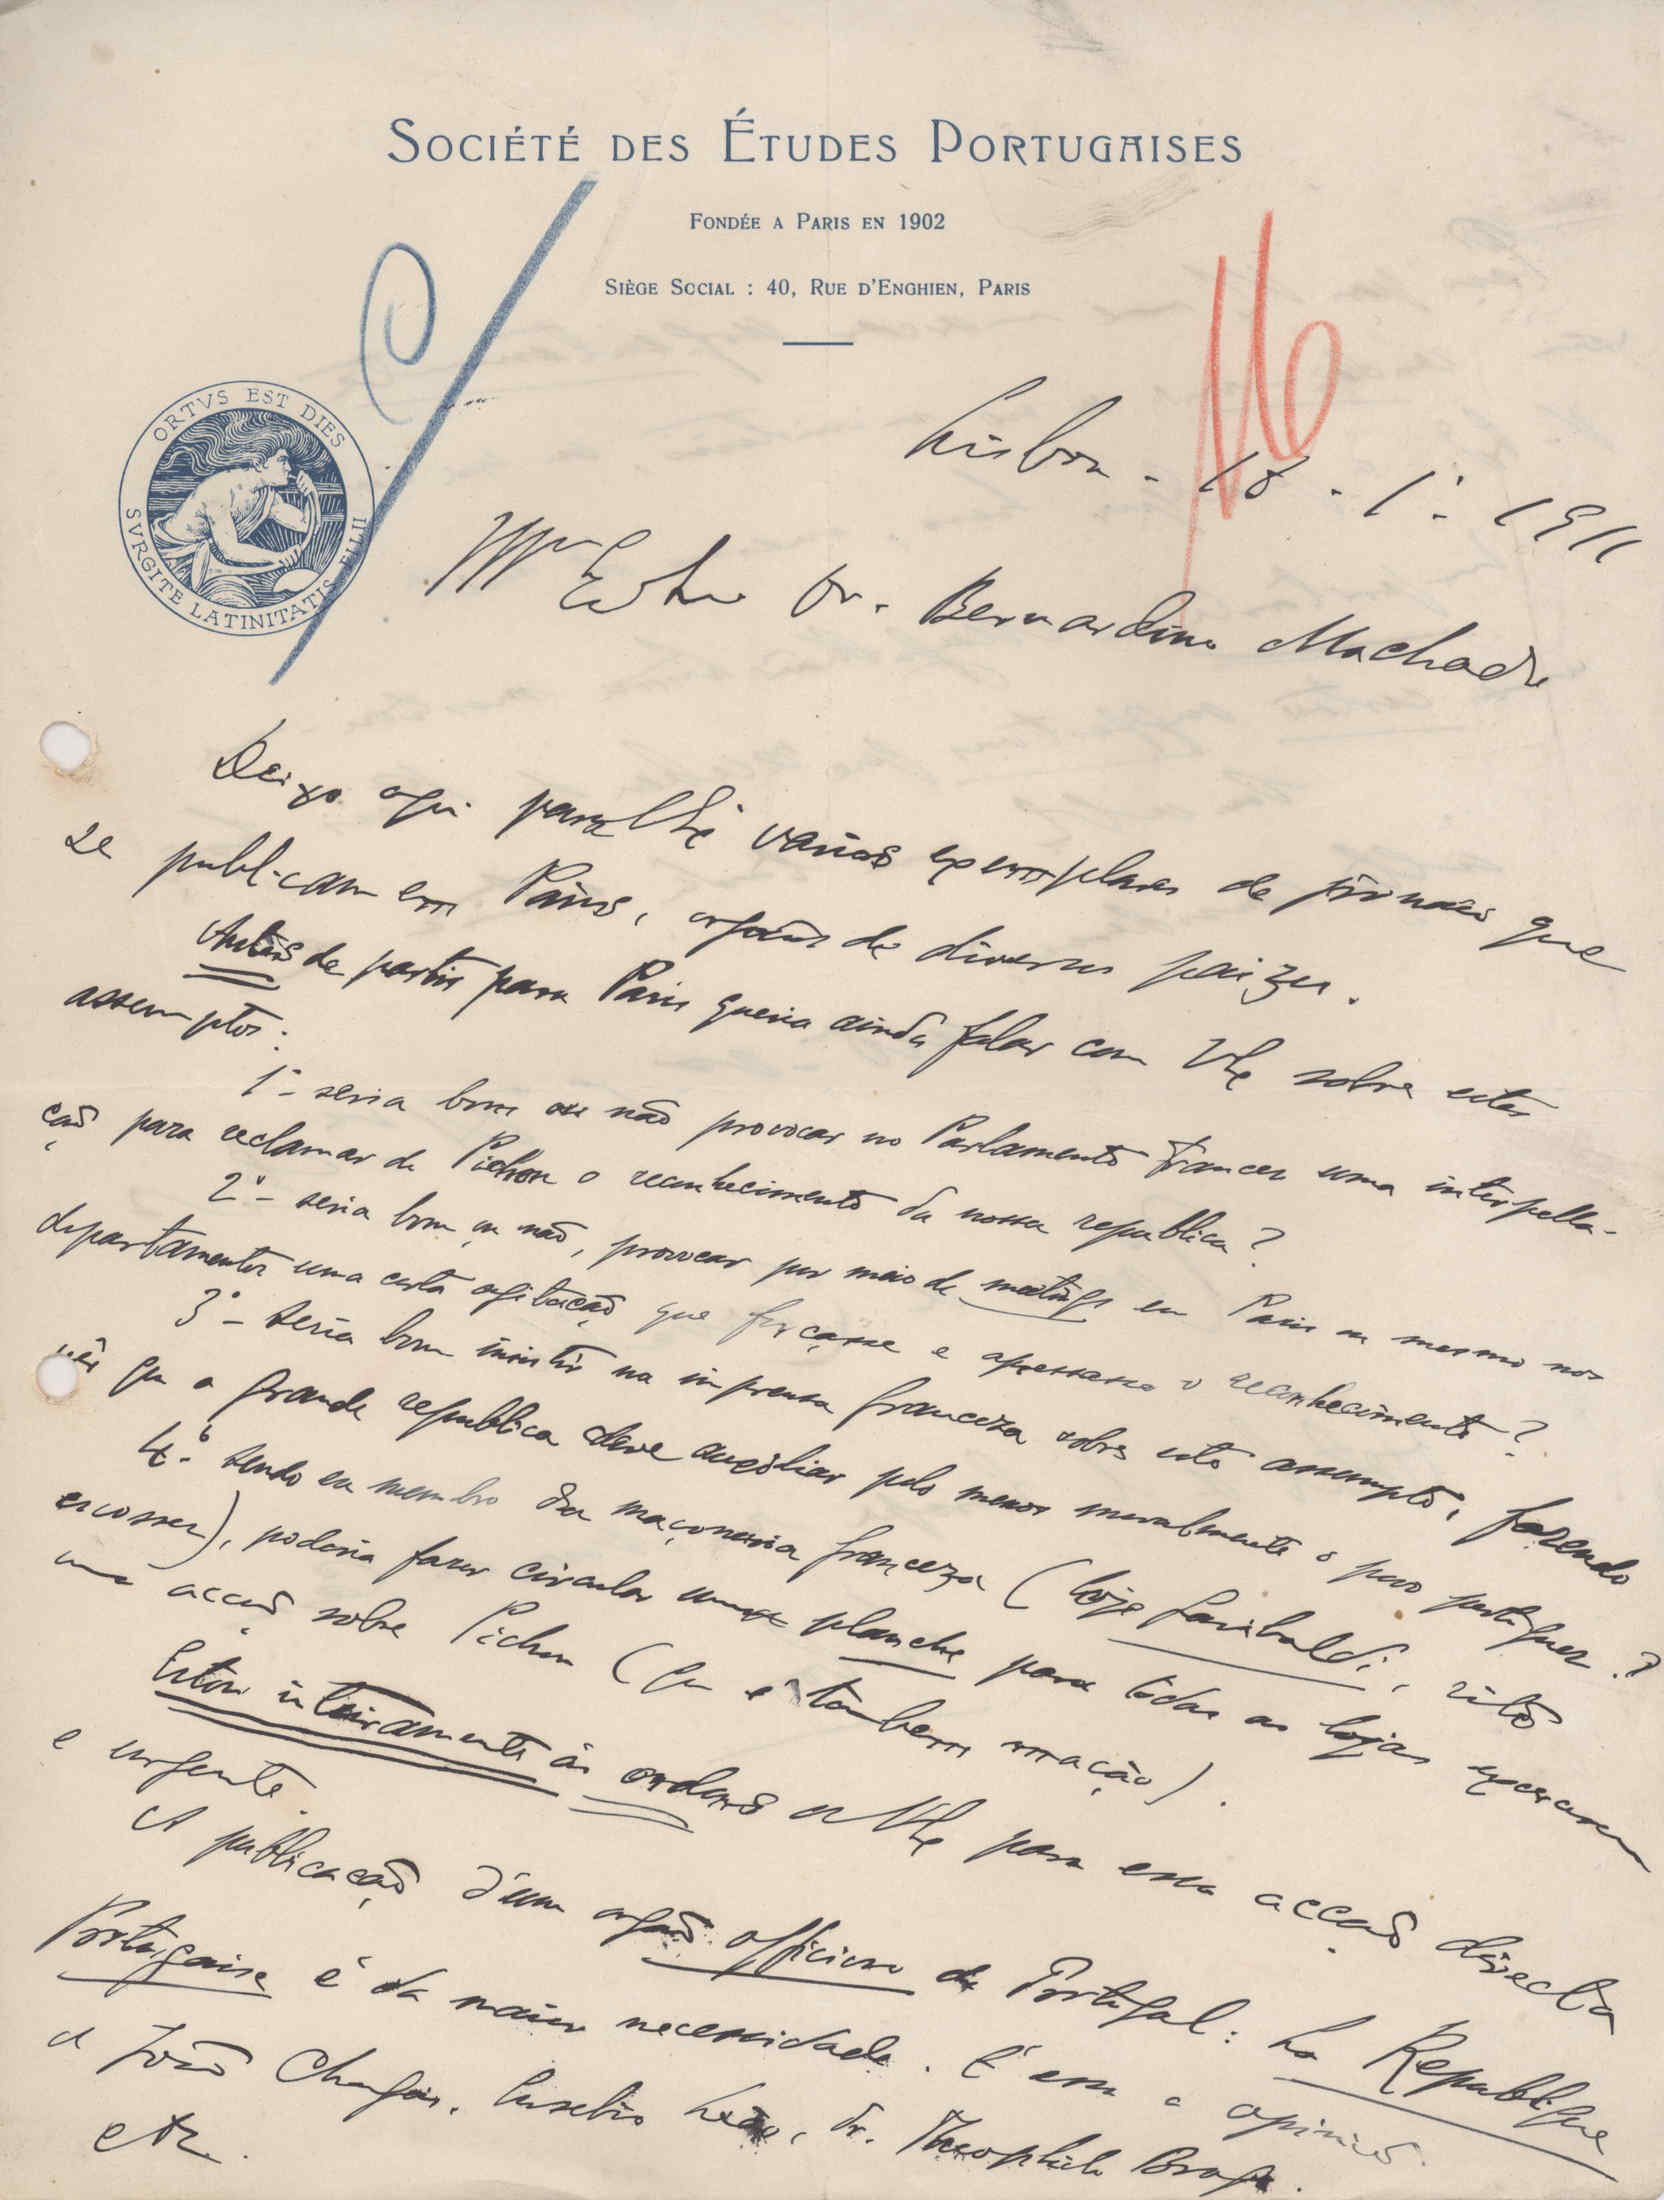 SOCIÉTÉ DES ÉTUDES PORTUGAISES
FONDÉE A PARIS EN 1902
SIÈGE SOCIAL : 40, RUE D'ENGHIEN, PARIS
ORTVS EST DIES
SVRGITE LATINITATIS FILII
Lisboa - 18 - 1º - 1911
Dr. Bernardino Machado
Deixo aqui para varios exemplares de jornaes que
se publicam em Paris, orgãos de diversos paizes.
Antes de partir para Paris queria ainda falar com sobre estes
assumptos:
1º - seria bom ou não provocar no Parlamento francez uma interpella-
ção para reclamar de Pichon o reconhecimento da nossa republica?
2º - seria bom ou não, provocar por meio de meetings em Paris ou mesmo nos
departamentos uma certa agitação que forçasse e apressasse o reconhecimento?
3º - seria bom insistir na imprensa franceza sobre este assumpto, fazendo
vêr que a grande republica deve auxiliar pelo menos moralmente o povo portuguez?
4º - sendo eu membro da maçonaria franceza (loja Garibaldi, rito
escossez), poderia fazer circular uma planche para todas as lojas exercerem
uma acção sobre Pichon (que é tambem mação).
Estou inteiramente ás ordens de para essa acção directa
e urgente.
A publicação d'um orgão officioso de Portugal: La Republique
Portugaise é da maior necessidade. É essa a opinião
de João Chagas, Eusebio Leão, Dr. Theophilo Braga.
etc.